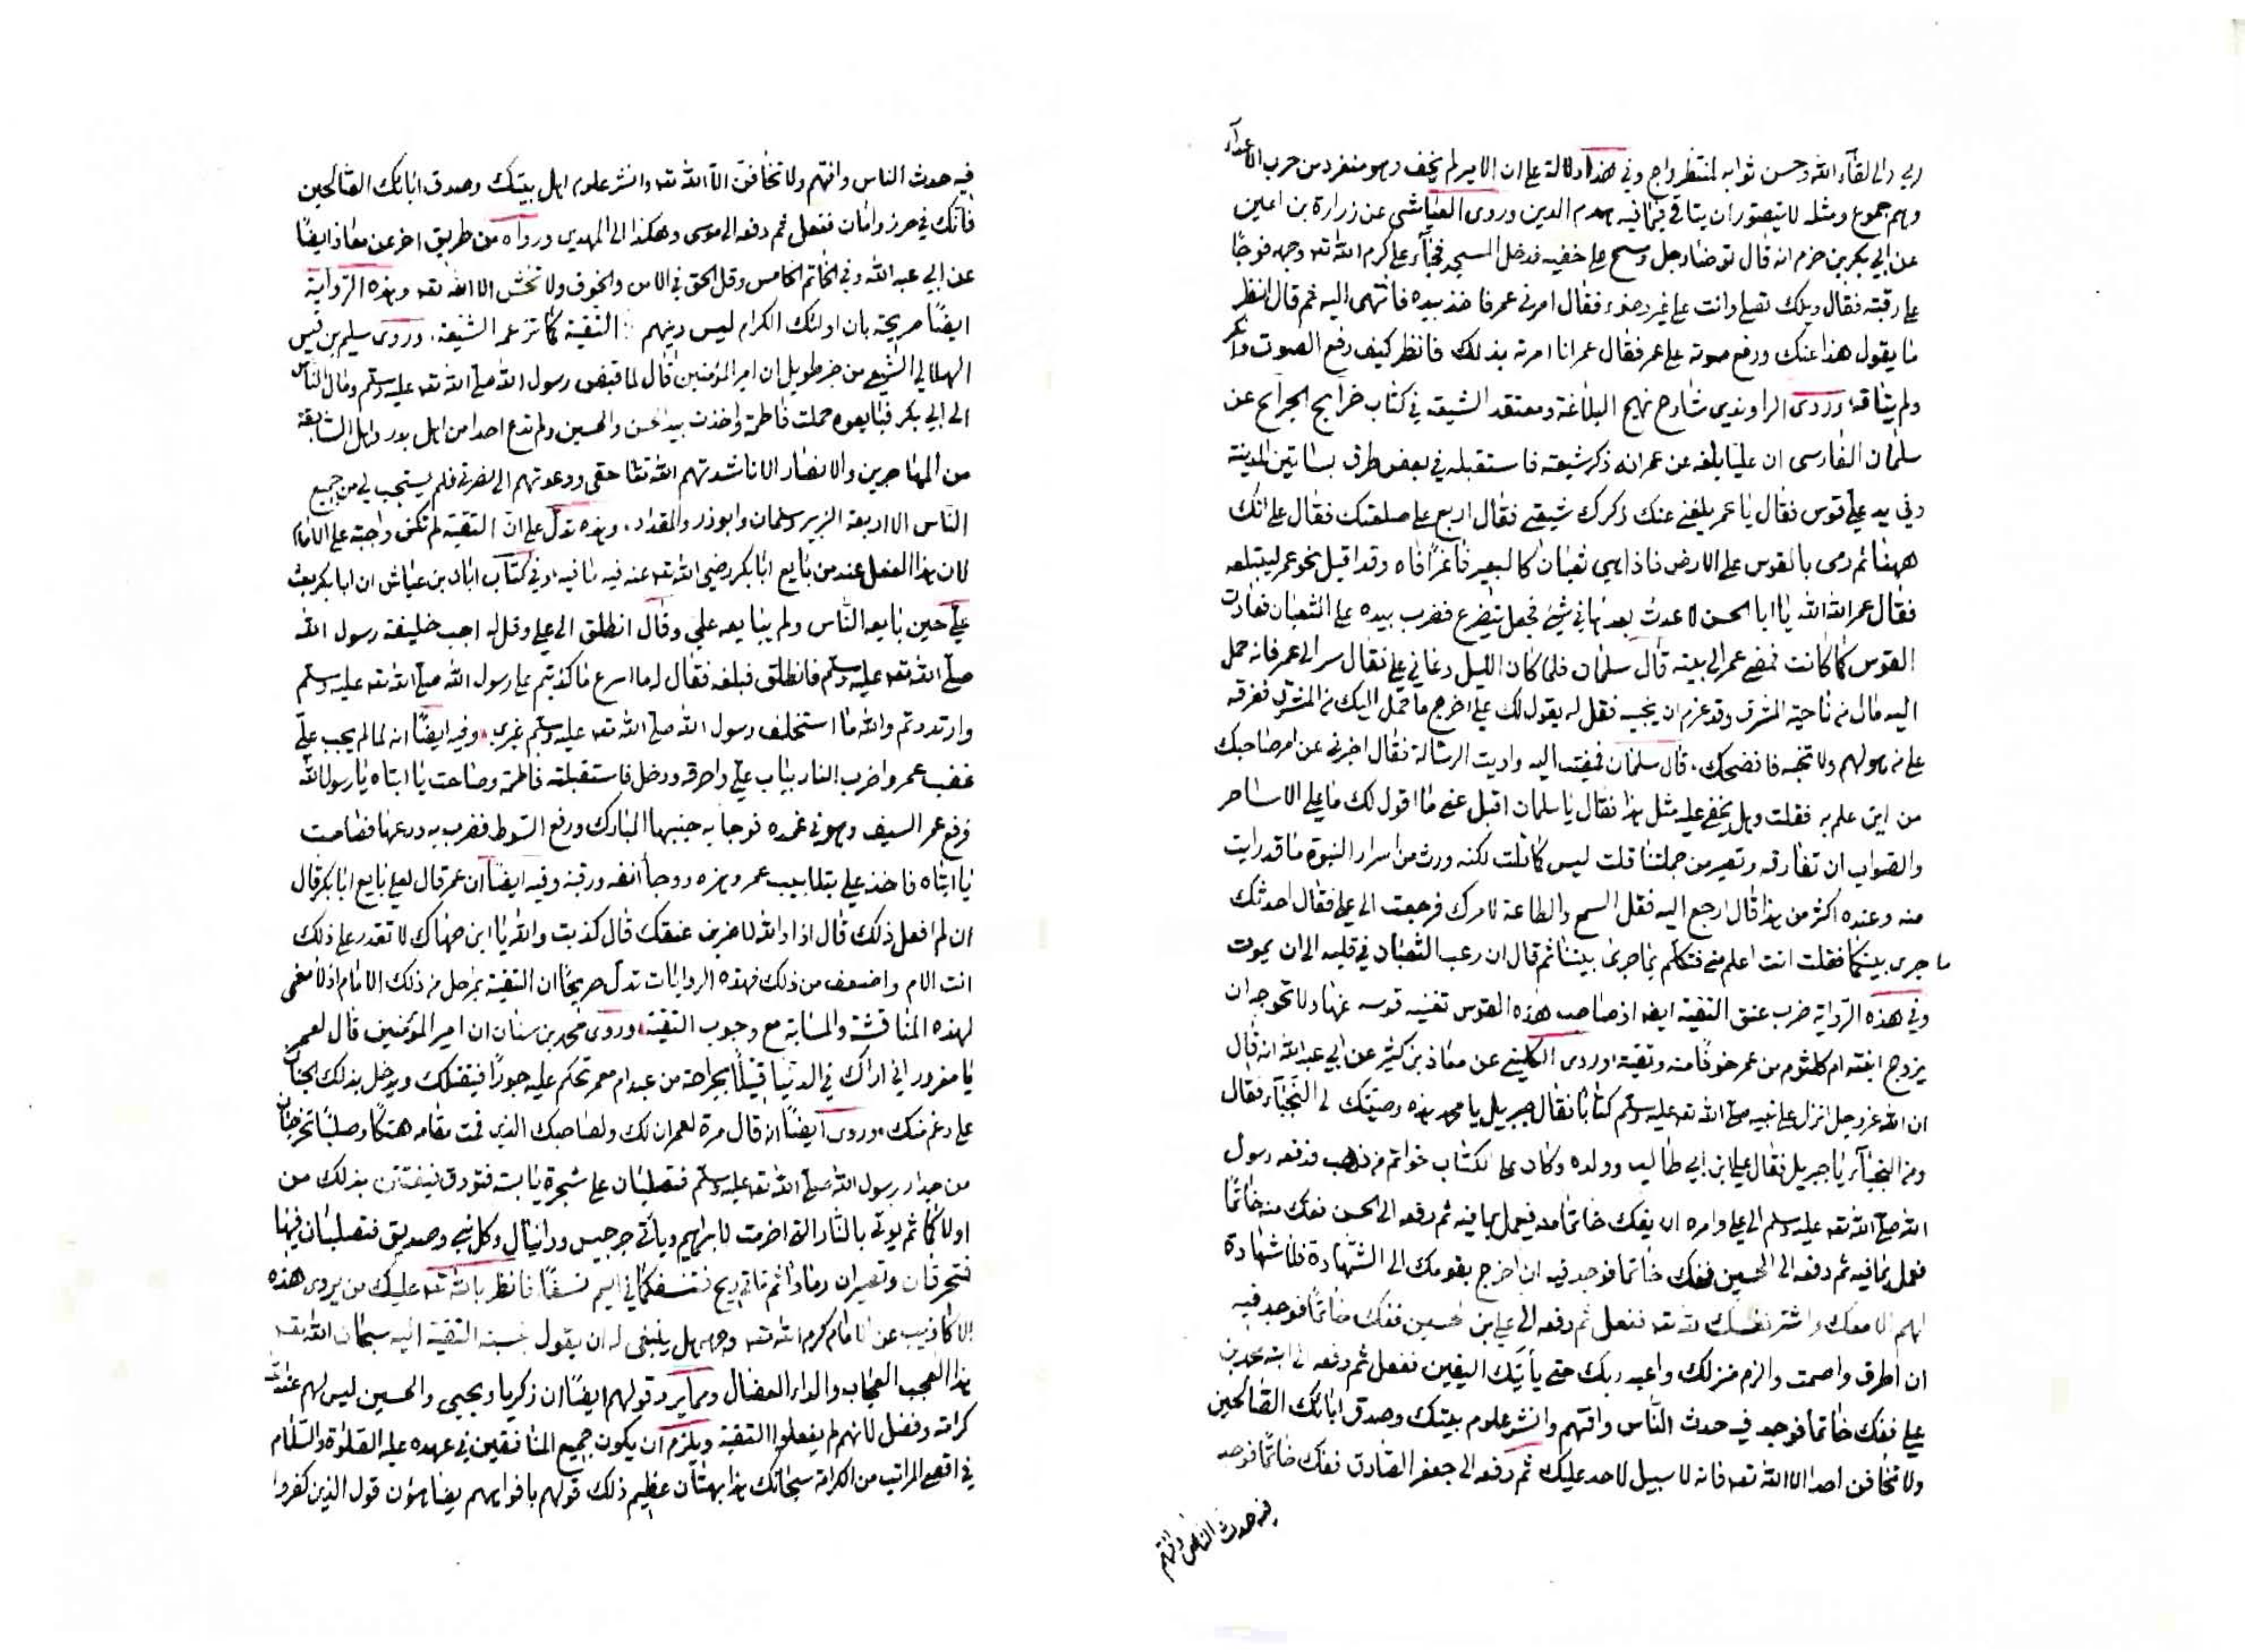 ربي والى لقاء الله وحسن ثوابه لمنتظر راج وفي هذا دلالة على ان الامير لم يخف وهو منفرد من حرب الاعداء
وهم جموع ومثله لا يتصور ان يتاقى فيما فيه هدم الدين وروى العياشي عن زرارة بن اعين
عن ابي بكر بن حزم انه قال توضا رجل ومسح على خفيه فدخل المسجد فجاء على كرم الله تعه وجهه فوجأ
على رقبته فقال ويلك تصلي وانت على غير وضوء فقال امرني عمر فاخذ بيده فانتهى اليه ثم قال انظر
ما يقول هذا عنك ورفع صوته على عمر فقال عمر انا امرته بذلك فانظر كيف رفع الصوت وانكر
ولم يتاقه وروى الراوندي شارح نهج البلاغة ومعتقد الشيعة في كتاب خرايج الجرايح عن
سلمان الفارسى ان عليا بلغه عن عمر انه ذكر شيعته فاستقبله في بعض طرق بساتين المدينة
وفي يد علي قوس فقال يا عمر بلغني عنك ذكرك شيعتي فقال اربع على صلعتك فقال على انك
ههنا ثم رمى بالقوس على الارض فاذا هي ثعبان كالبعير فاغرا فاه وقد اقبل نحو عمر ليبتلعه
فقال عمر الله الله يا ابا الحسن لا عدت بعدها في شيئ فجعل يتضرع فضرب بيده على الثعبان فعادت
القوس كما كانت فمضى عمر الى بيته قال سلمان فلما كان الليل دعاني علي فقال سر الى عمر فانه حمل
اليه مال من ناحية المشرق وقد عزم ان يحبسه فقل له يقول لك علي اخرج ما حمل اليك من المشرق ففرقه
على من هو لهم ولا تحبسه فافضحك، قال سلمان فمضيت اليه واديت الرسالة فقال اخبرني عن امر صاحبك
من اين علم به فقلت وهل يخفى عليه مثل هذا فقال يا سلمان اقبل عني ما اقول لك ما علي الا ساحر
والصواب ان تفارقه وتصير من جملتنا قلت ليس كما قلت لكنه ورث من اسرار النبوة ما قد رايت
منه وعنده اكثر من هذا قال ارجع اليه فقل السمع والطاعة لامرك فرجعت الى علي فقال احدثك
ما جرى بينكما فقلت انت اعلم مني فتكلم بما جرى بيننا ثم قال ان رعب الثعبان في قلبه الى ان يموت
وفي هذه الرواية ضرب عنق التقية ايضا اذ صاحب هذه القوس تغنيه قوسه عنها ولا تحوجه ان
يزوج ابنته ام كلثوم من عمر خوفا منه وتقية اوروى الكليني عن معاذ بن كثير عن ابي عبد الله انه قال
ان الله عز وجل انزل على نبيه صلى الله تعه عليه وسلم كتابا فقال جبريل يا محمد هذه وصيتك الى النجباء فقال
ومن النجباء يا جبريل فقال علي ابن ابي طالب وولده وكان على الكتاب خواتم من ذهب فدفعه رسول
الله صلى الله تعه عليه وسلم الى علي وامره ان يفك خاتما منه فيعمل بما فيه ثم دفعه الى الحسن ففك منه خاتما
فعمل بما فيه ثم دفعه الى الحسين ففك خاتما فوجد فيه ان اخرج بقومك الى الشهادة فلا شهادة
لهم الا معك واشتر نفسك لله تعه ففعل ثم دفعه الى علي ابن الحسين ففك خاتما فوجد فيه
ان اطرق واصمت والزم منزلك واعبد ربك حتى يأتيك اليقين ففعل ثم دفعه الى ابنه محمد بن
علي ففك خاتما فوجد فيه حدث الناس وافتهم وانشر علوم اهل بيتك وصدق ابائك الصالحين
ولا تخافن احدا الا الله تعه فانه لا سبيل لاحد عليك ثم دفعه الى جعفر الصادق ففك خاتما فوجد
فيه حدث الناس وافتهم
فيه حدث الناس وافتهم ولا تخافن الا الله تعه وانشر علوم اهل بيتك وصدق ابائك الصالحين
فانك في حرز وامان ففعل ثم دفعه الى موسى وهكذا الى المهدي ورواه من طريق اخر عن معاذ ايضا
عن ابي عبد الله وفي الخاتم الخامس وقل الحق في الامن والخوف ولا تخش الا الله تعه وهذه الرواية
ايضا صريحة بان اولئك الكرام ليس دينهم التقية كما تزعم الشيعة، وروى سليم بن قيس
الهلالي الشيعي من خبر طويل ان امير المؤمنين قال لما قبض رسول الله صلى الله تعه عليه وسلم ومال الناس
الى ابي بكر فبايعوه حملت فاطمة واخذت بيد الحسن والحسين ولم تدع احدا من اهل بدر واهل السابقة
من المهاجرين والانصار الا ناشدتهم الله تعا حقي ودعوتهم الى نصرتي فلم يستجب لي من جميع
الناس الا اربعة الزبير وسلمان وابوذر والمقداد، وهذه تدل على ان التقية لم تكن واجبة على الامام
لان هذا الفعل عند من بايع ابا بكر رضي الله تعه عنه فيه ما فيه وفي كتاب ابان بن عياش ان ابا بكر بعث
علي حين بايعه الناس ولم يبايعه علي وقال انطلق الى علي وقل له اجب خليفة رسول الله
صلى الله تعه عليه وسلم فانطلق فبلغه فقال له ما اسرع ما كذبتم على رسول الله صلى الله تعه عليه وسلم
وارتددتم والله ما استخلف رسول الله صلى الله تعه عليه وسلم غيري، وفيه ايضا انه لما لم يجب علي
غضب عمر واضرب النار بباب علي واحرقه ودخل فاستقبلته فاطمة وصاحت يا ابتاه يا رسول الله
فرفع عمر السيف وهو في غمده فوجا به جنبها المبارك ورفع السوط فضرب به درعها فصاحت
يا ابتاه فاخذ علي بتلابيب عمر وهزه ووجأ انفه ورقبته وفيه ايضا ان عمر قال لعلي بايع ابا بكر قال
ان لم افعل ذلك قال اذا والله لاضربن عنقك قال كذبت والله يا ابن صهاك لا تقدر على ذلك
انت الام واضعف من ذلك فهذه الروايات تدل صريحا ان التقية بمرحل من ذلك الامام اذ لا معنى
لهذه المناقشة والمسابة مع وجوب التقية، وروى محمد بن سنان ان امير المؤمنين قال لعمر
يا مغرور اني اراك في الدنيا قتيلا بجراحة من عبد ام معمر تحكم عليه جورا فيقتلك ويدخل بذلك الجنان
على رغم منك، وروى ايضا انه قال مرة لعمر ان لك ولصاحبك الذي قمت مقامه هتكا وصلبا تخرجان
من جوار رسول الله صلى الله تعه عليه وسلم فتصلبان على شجرة يابسة فتورق فيفتتن بذلك من
اولاكما ثم يوتى بالنار التي اضرمت لابراهيم ويأتي جرجيس ودانيال وكل نبي وصديق فتصلبان فيها
فتحرقان وتصيران رمادا ثم تاتي ريح فتنسفكما في اليم نسفا، فانظر بالله تعه عليك من يروى هذه
الاكاذيب عن الامام كرم الله تعه وجهه هل ينبغي له ان يقول بنسبة التقية اليه سبحان الله تعه
هذا العجب العجاب والداء العضال ومما يرد قولهم ايضا ان زكريا ويحيى والحسين ليس لهم عند الله
كرامة وفضل لانهم لم يفعلوا التقية ويلزم ان يكون جميع المنافقين في عهده عليه الصلوة والسلام
في اقصى المراتب من الكرامة سبحانك هذا بهتان عظيم ذلك قولهم بافواههم يضاهؤن قول الذين كفروا